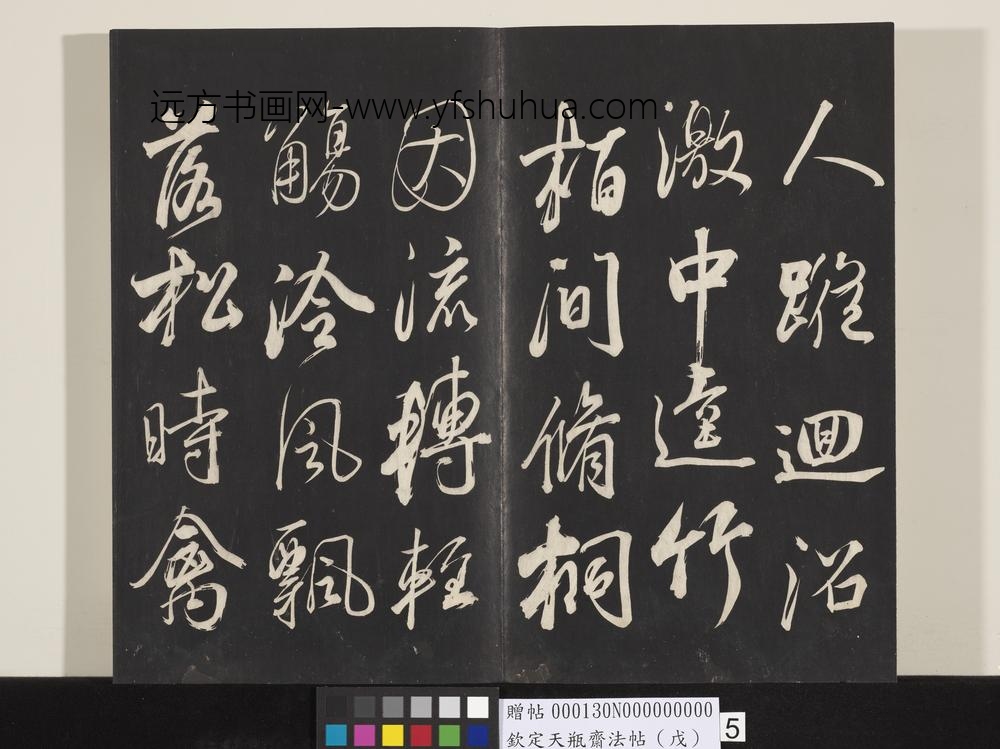 远方书画网-www.yfshuhua.com
人蹤迴沼
激中逵竹
栢間脩桐
因流轉輕
觴泠風飄
落松時禽
贈帖 000130N000000000
欽定天瓶齋法帖（戊）
5